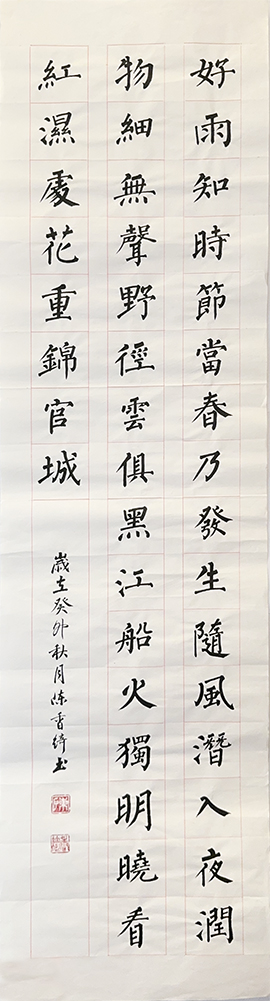 好雨知時節當春乃發生隨風潛入夜潤
物細無聲野徑雲俱黑江船火獨明曉看
紅濕處花重錦官城
歲在癸卯秋月陳香綺書